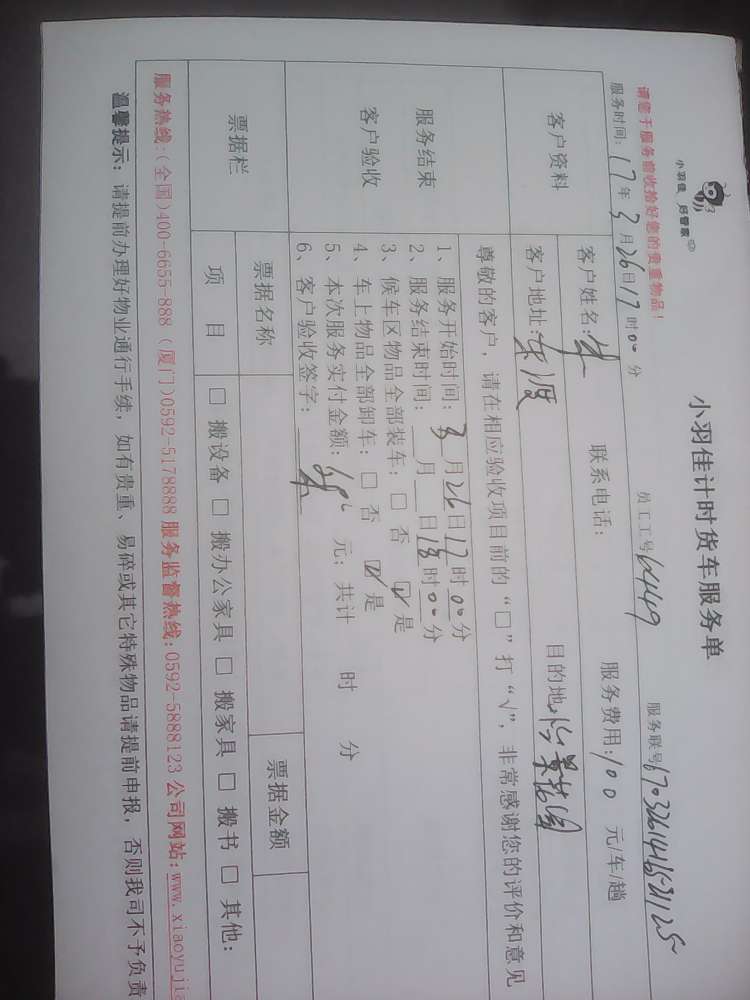 小羽佳 好管家
小羽佳计时货车服务单
请您于服务前收拾好您的贵重物品！
服务时间：17年3月26日17时00分 员工工号 6449 服务联号
客户资料
客户姓名：朱 联系电话： 服务费用：100 元/车/趟
客户地址：东渡 目的地
服务结束
客户验收
尊敬的客户，请在相应验收项目前的“□”打“√”，非常感谢您的评价和意见
1、服务开始时间：3月26日17时00分
2、服务结束时间：＿月＿日18时00分
3、候车区物品全部装车：□ 否 ☑ 是
4、车上物品全部卸车：□ 否 ☑ 是
5、本次服务实付金额： 元；共计 时 分
6、客户验收签字：朱
票据栏
票据名称 票据金额
项 目 □ 搬设备 □ 搬办公家具 □ 搬家具 □ 搬书 □ 其他：
服务热线：(全国)400-6655-888 (厦门)0592-5178888 服务监督热线：0592-5888123 公司网站：www.xiaoyujia
温馨提示：请提前办理好物业通行手续，如有贵重、易碎或其它特殊物品请提前申报，否则我司不予负责